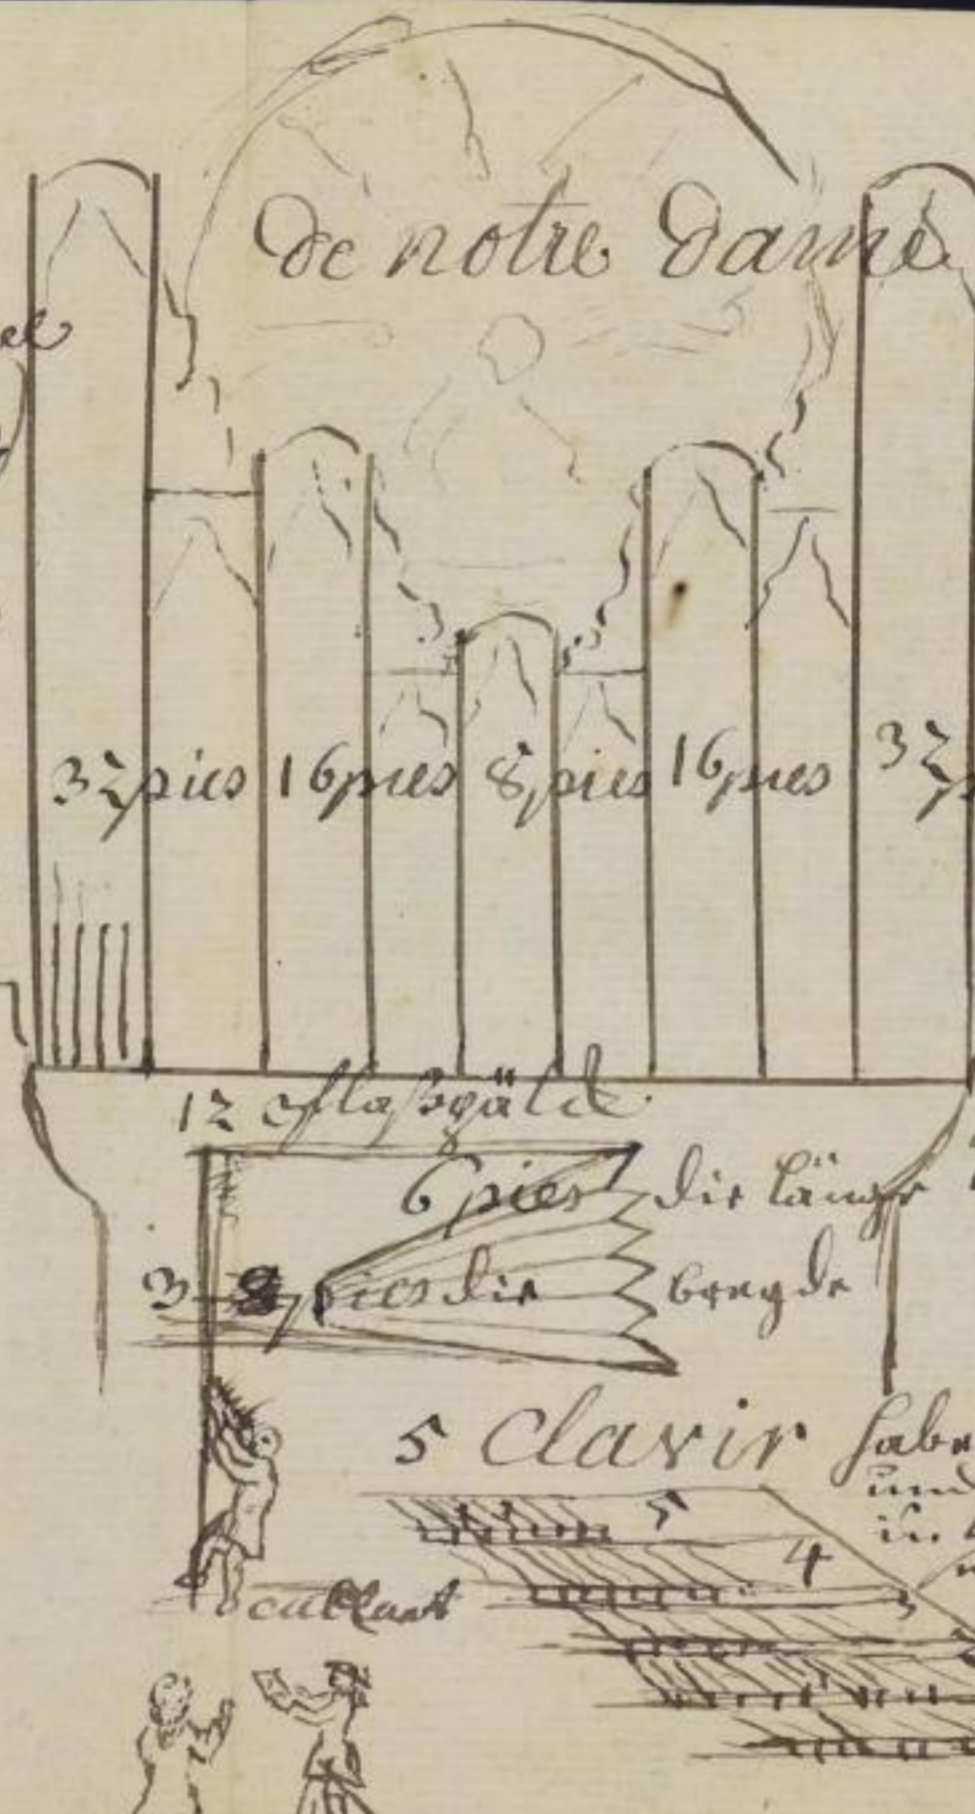 de notre dame
32 pies 16 pies 8 pies 16 pies 32 p
12 blaßbälde
6 pies die länge
3 pies die breyde
5 Clavir habe
und
in
5
4
3
2
callcant